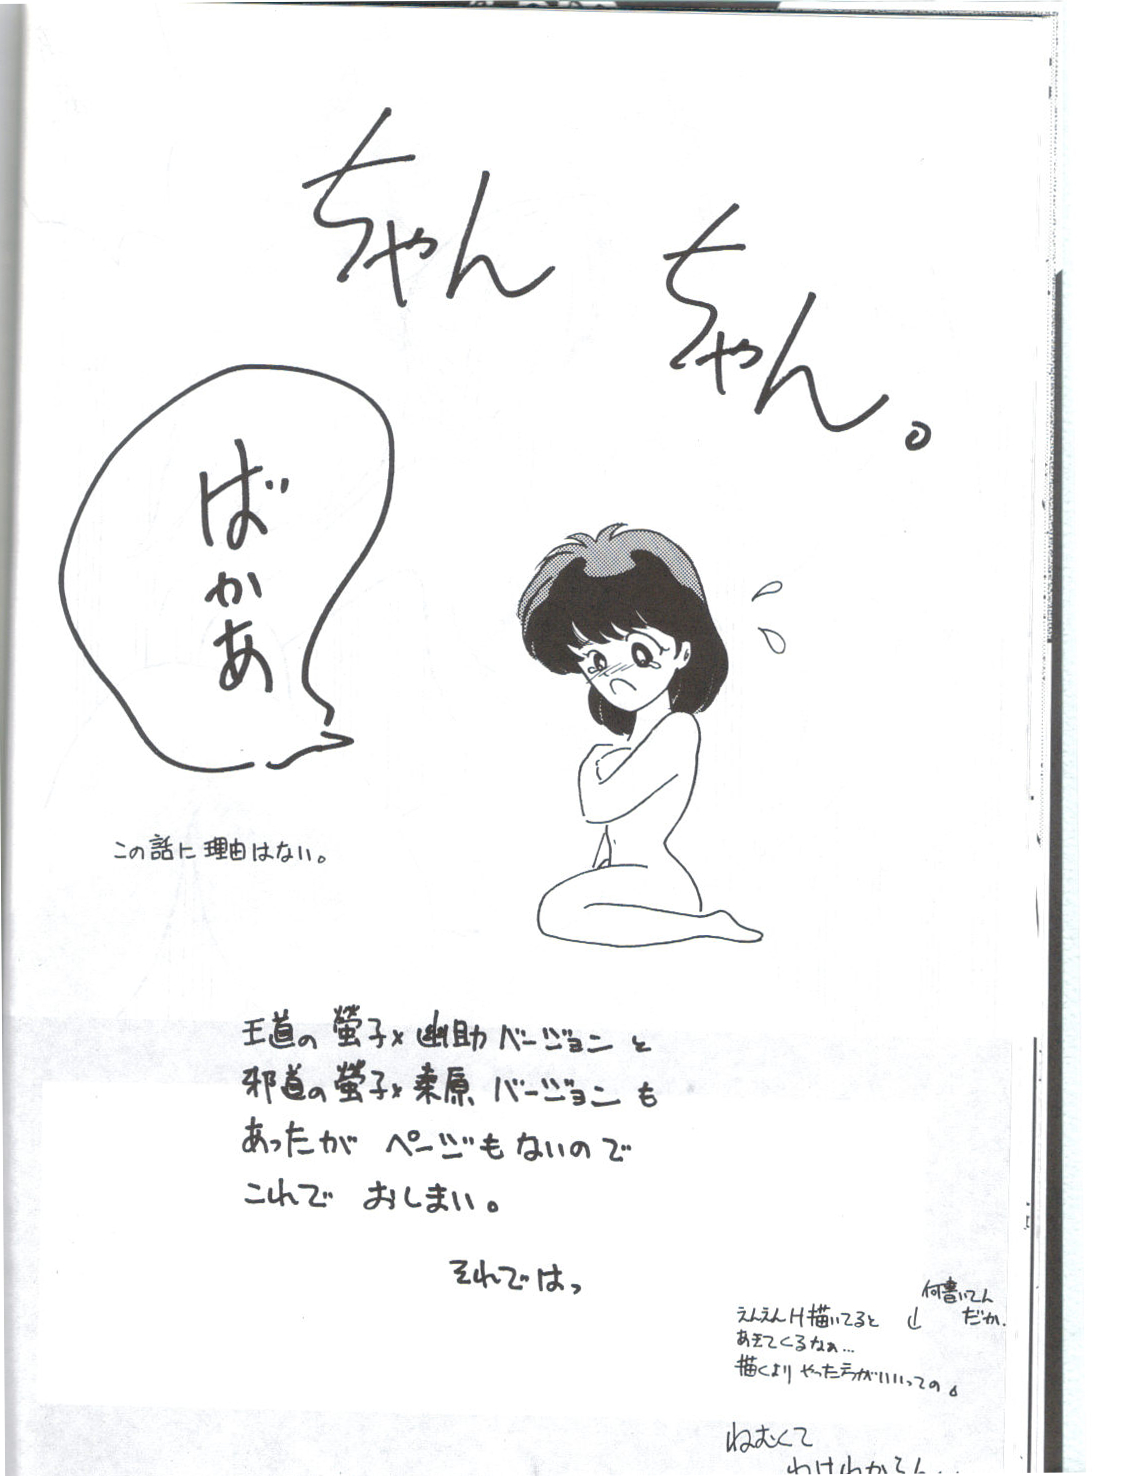 ちゃん
ちゃん。
ばかあ
この話に理由はない。
王道の螢子×幽助バージョンと
邪道の螢子×桑原バージョンも
あったが ページもないので
これで おしまい。
それではっ
えんえんH描いてると
あきてくるなぁ…
描くより やった方がいいっての。
↓
何書いてん
だか.
ねむくて
わけわからん…